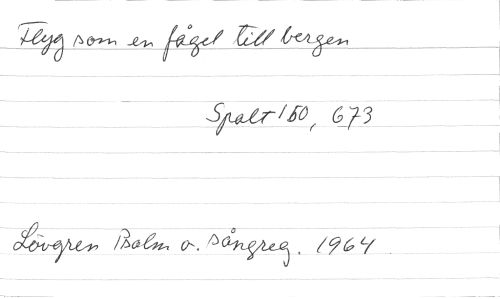 Flyg som en fågel till bergen
Spalt 150, 673
Lövgren Psalm o. sångreg. 1964